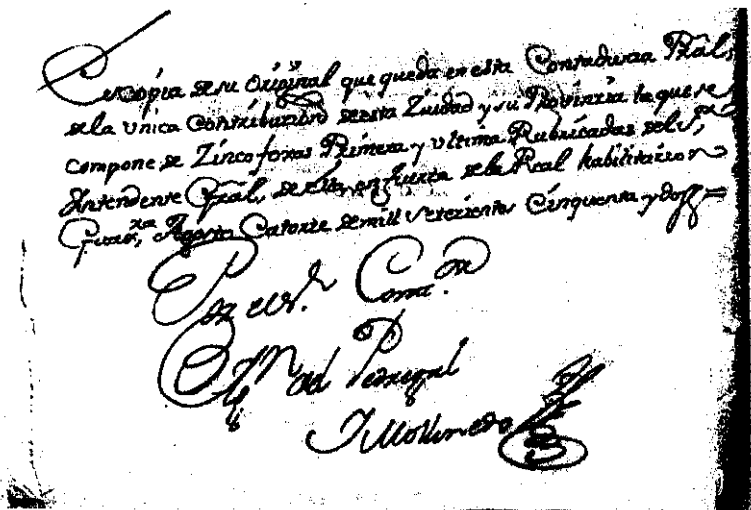 Es copia de su Original que queda en esta Contaduria Pral,
de la Unica Contribucion de esta Ziudad y su Provinzia la que se
compone de Zinco foxas Primera y ultima Rubricadas del Sr,
Intendente Gral, de ella, en fuerza de la Real habilitazion
Agosto Catorze de mill setezientos Cinquenta y dos =
Por el Sr. Conta.or
del Pedregal
Mollinedo